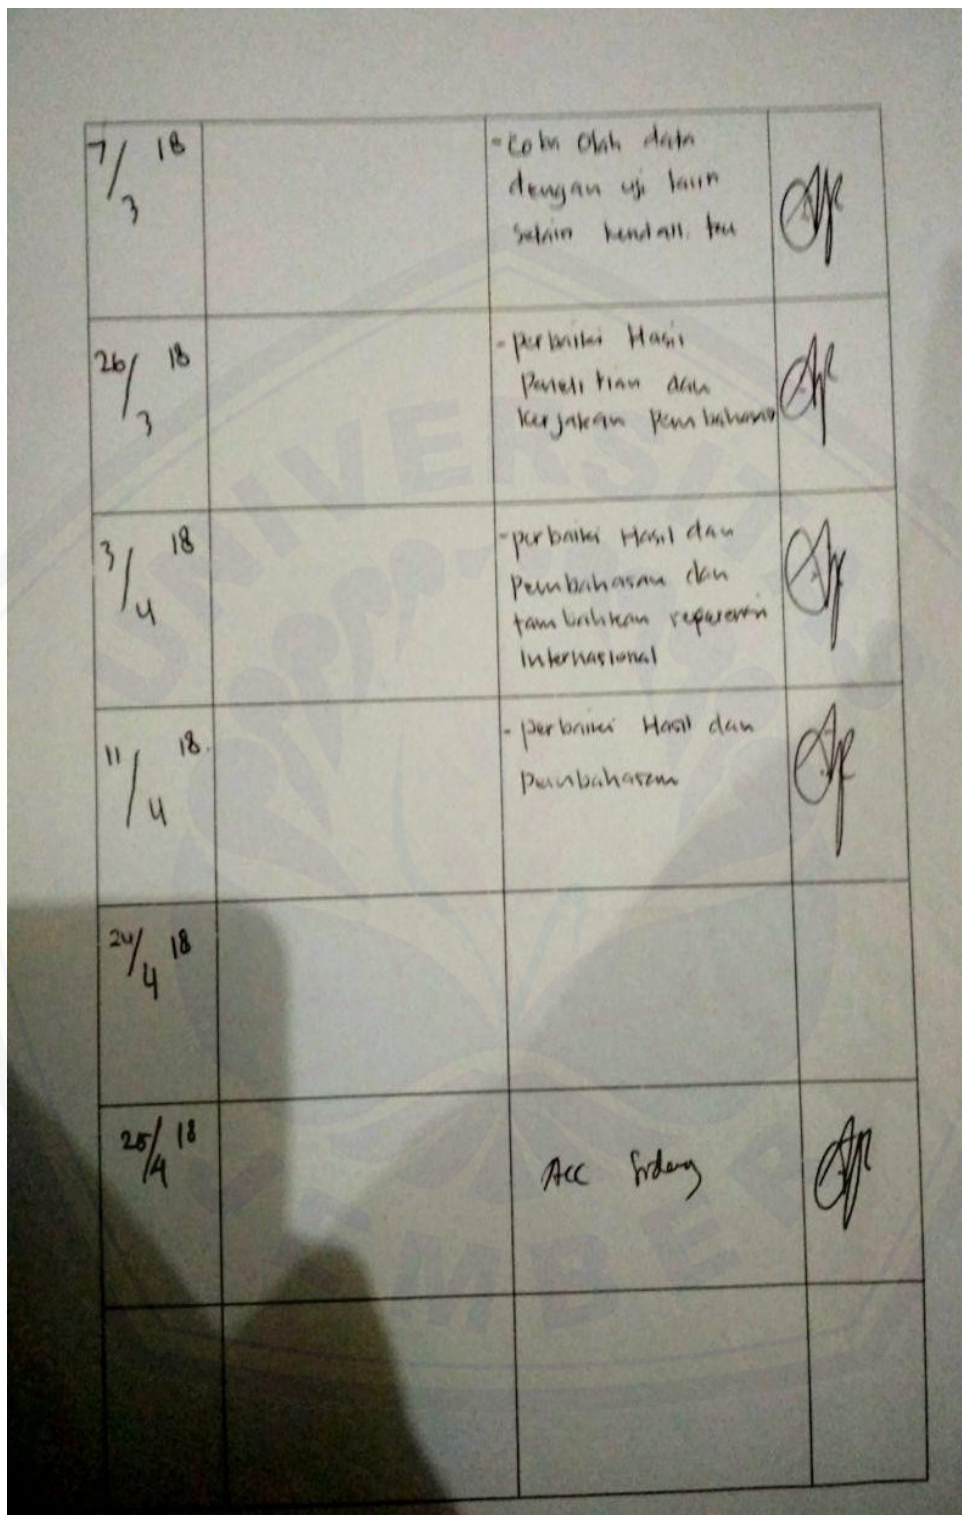 7/3 18
- Coba Olah data
dengan uji lain
selain kendall tau
26/3 18
- perbaiki Hasil
Penelitian dan
Kerjakan Pembahasan
3/4 18
- perbaiki Hasil dan
Pembahasan dan
tambahkan referensi
Internasional
11/4 18.
- perbaiki Hasil dan
pembahasan
24/4 18
25/4 18
Acc Sidang
UNIVERSITAS
JEMBER